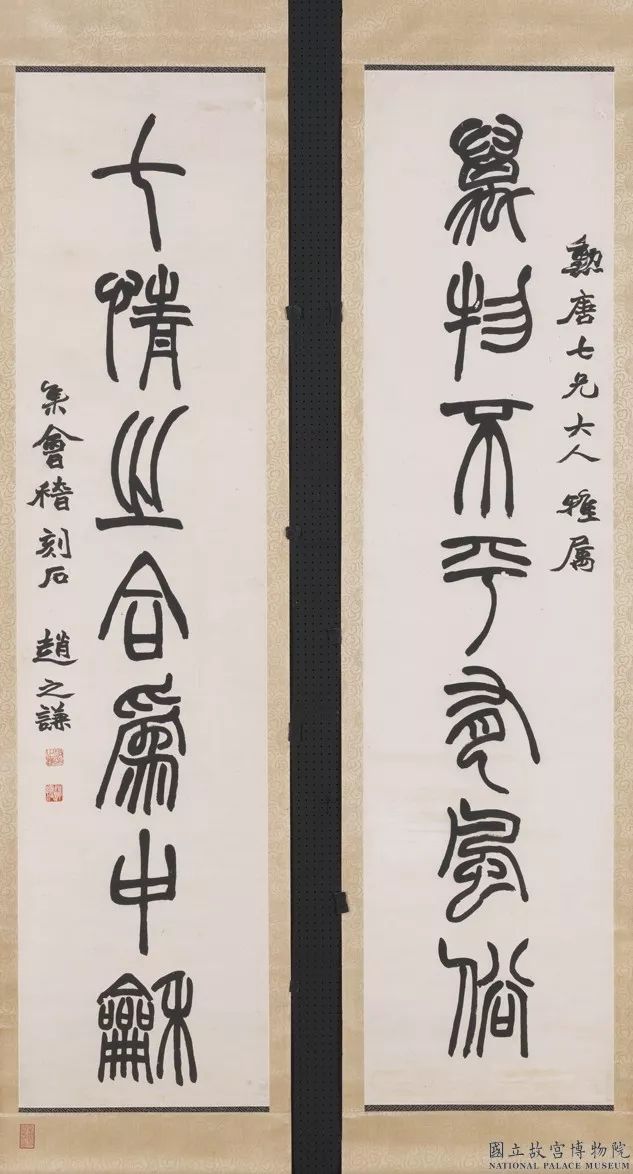 勲唐七兄大人雅屬
萬物不平有風俗
七情之合爲中龢
集會稽刻石 趙之謙
國立故宮博物院
NATIONAL PALACE MUSEUM